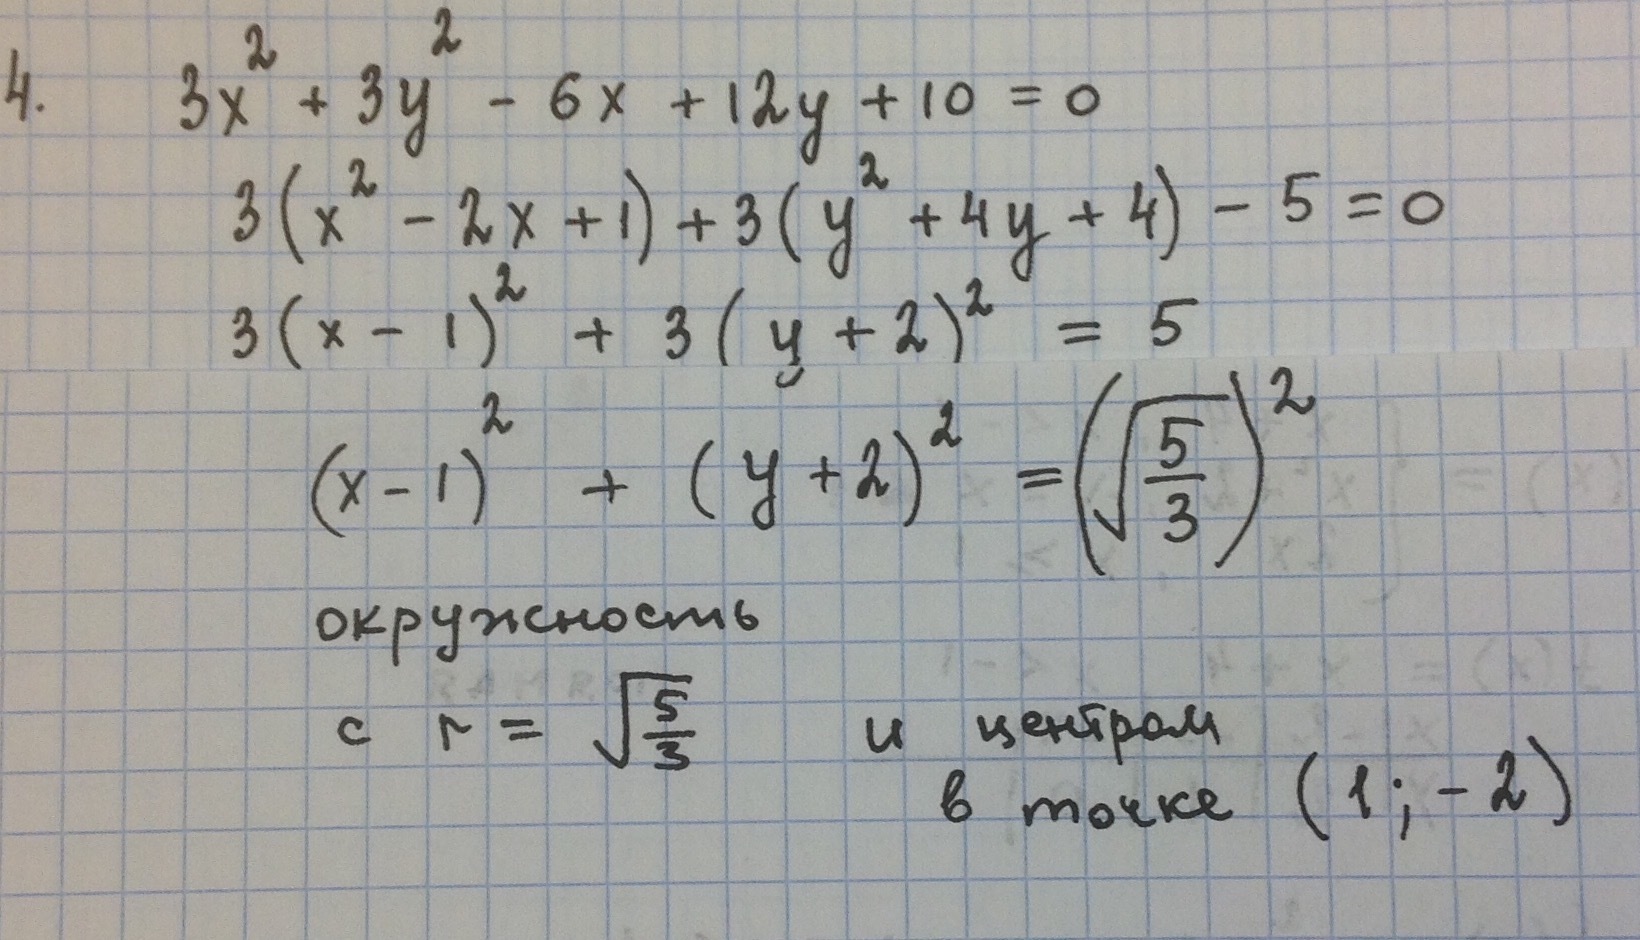 4. 3x² + 3y² - 6x + 12y + 10 = 0
3(x² - 2x + 1) + 3(y² + 4y + 4) - 5 = 0
3(x - 1)² + 3(y + 2)² = 5
(x - 1)² + (y + 2)² = (√(5/3))²
окружность
с r = √(5/3) и центром
в точке (1; -2)